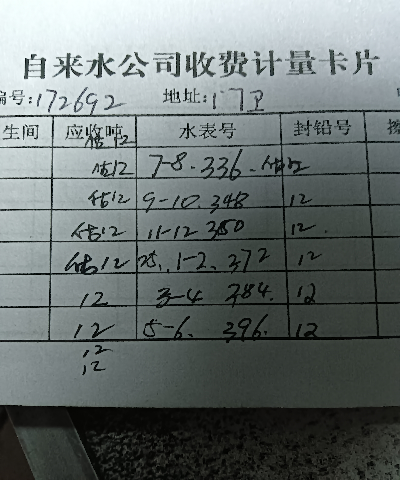 自来水公司收费计量卡片
编号:172692 地址:1-7卫
生间 应收吨 水表号 封铅号
估12
估12 7-8. 336. 估12
估12 9-10. 348 12
估12 11-12 350 12.
估12 25. 1-2. 372 12
12 3-4 384. 12
12 5-6. 396. 12
12
12